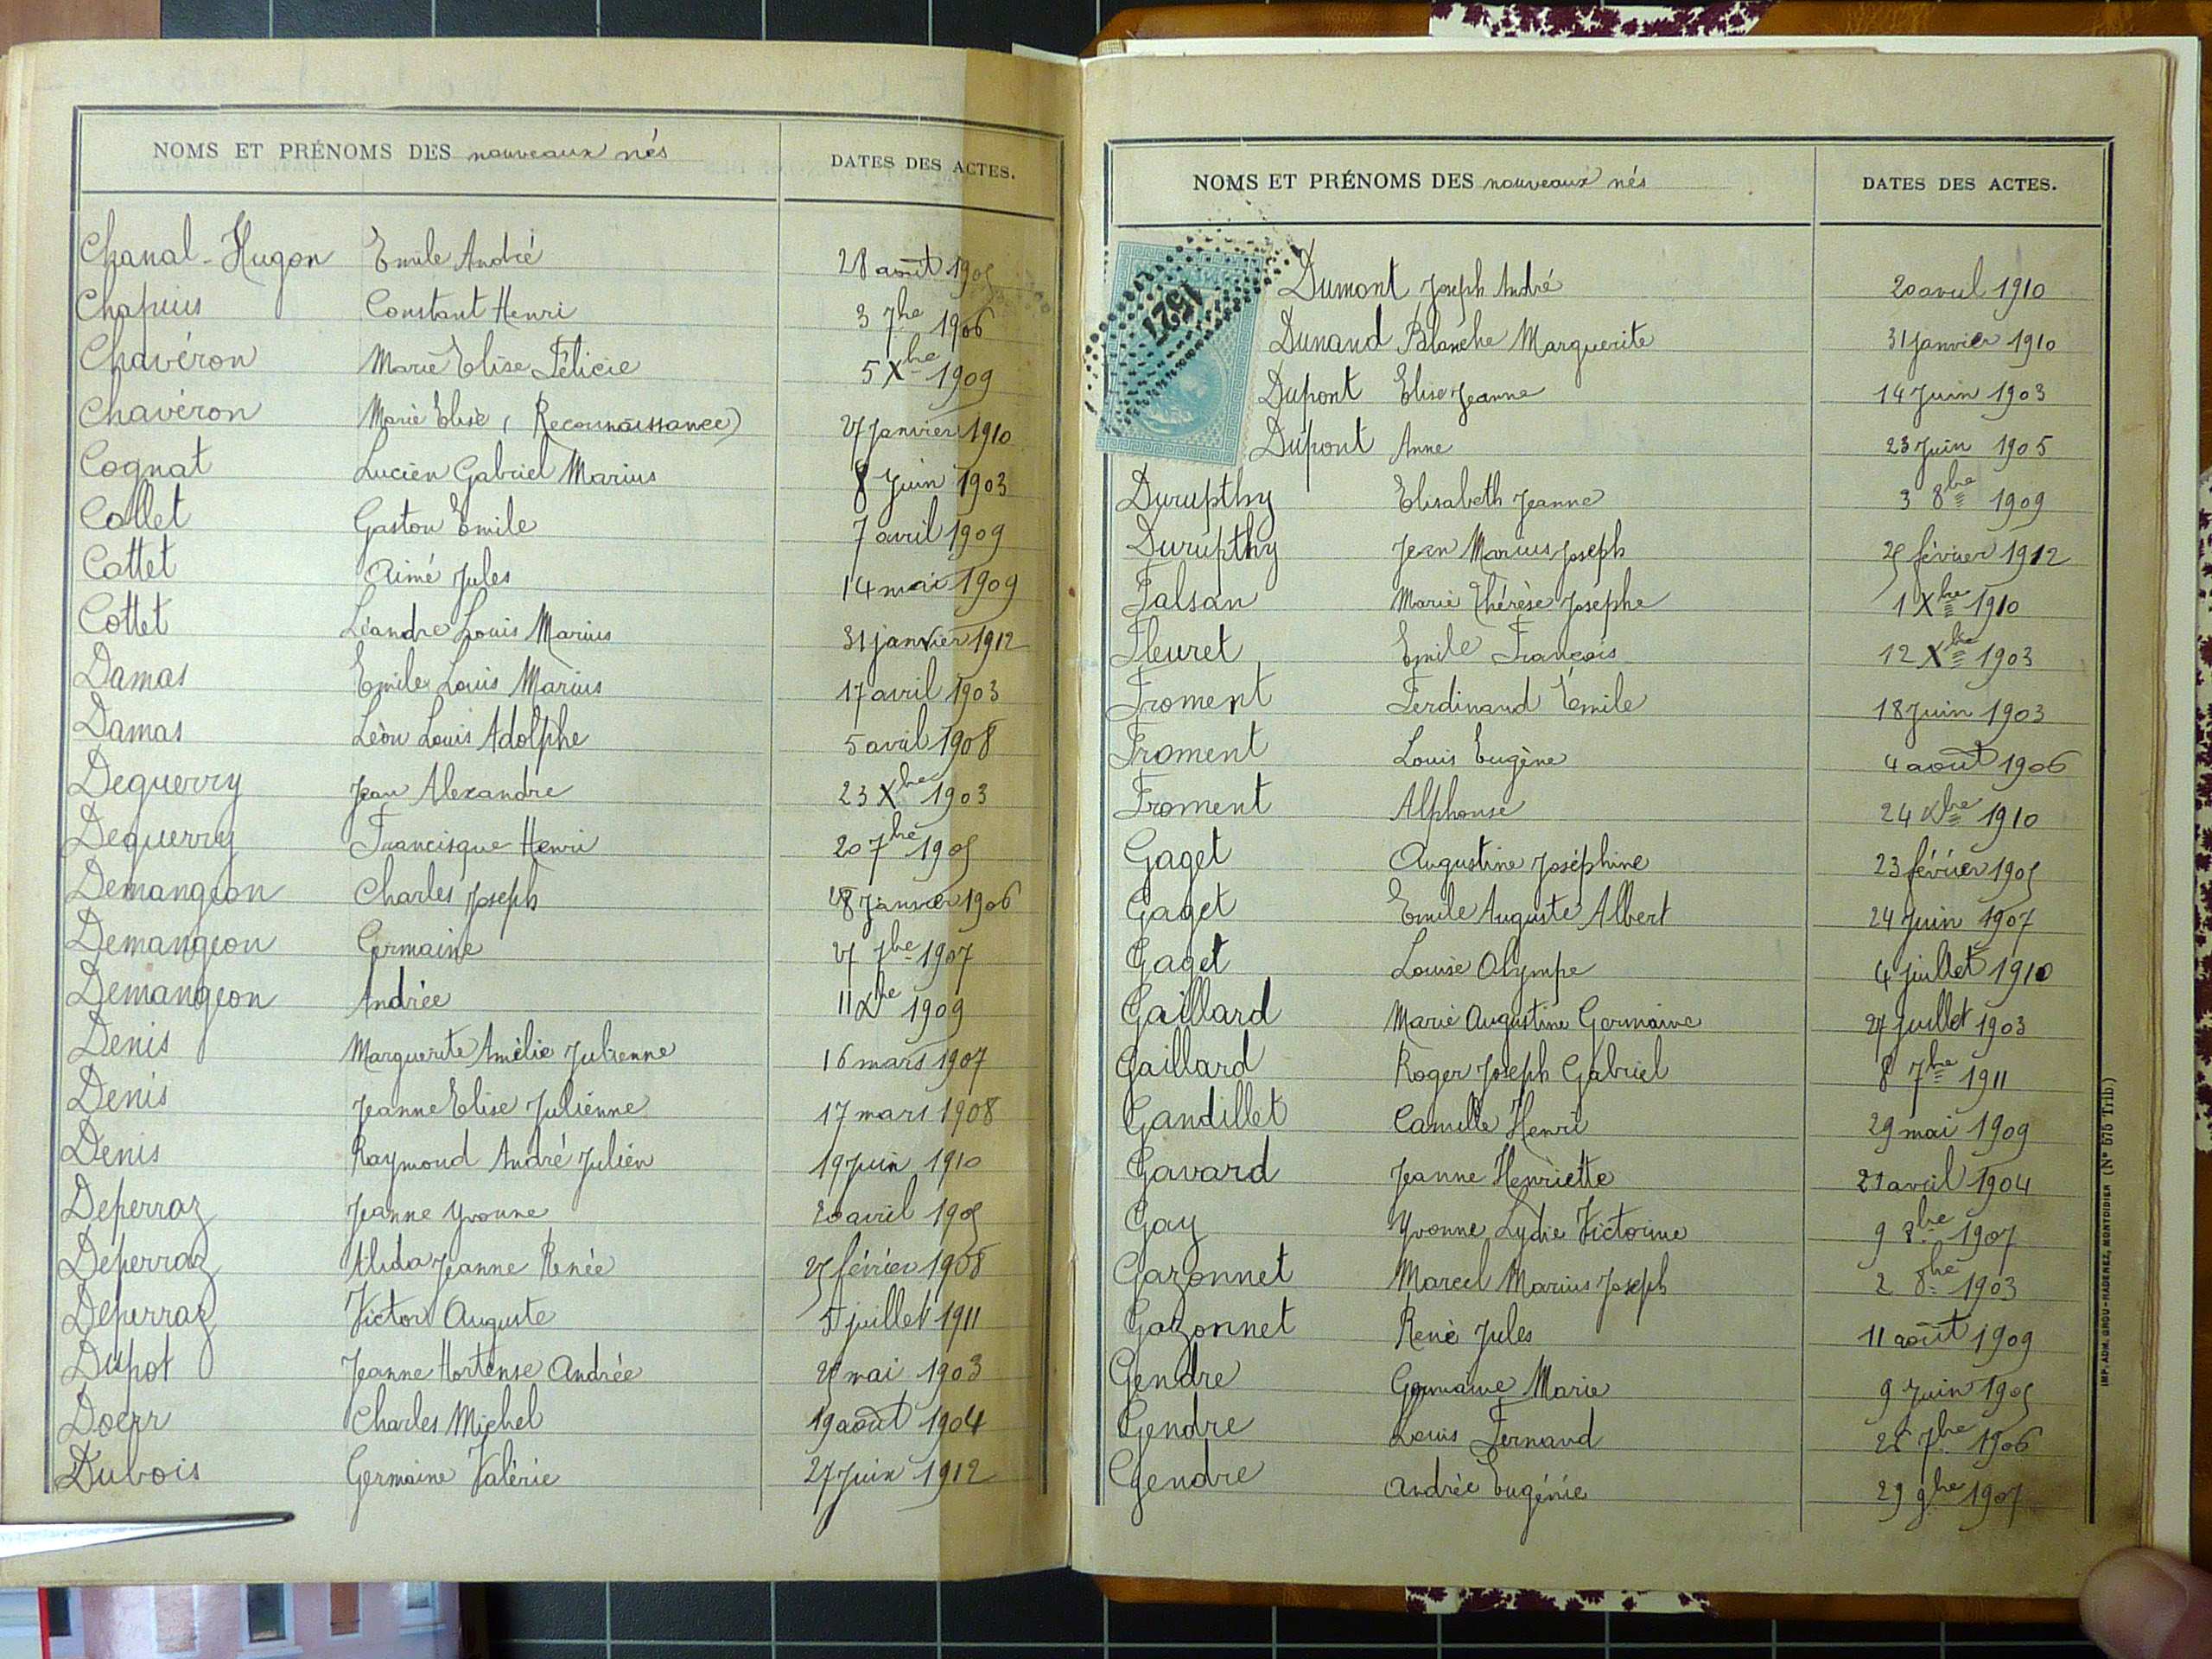 NOMS ET PRÉNOMS DES nouveaux nés DATES DES ACTES.
Chanal-Hugon Emile André 28 août 1905
Chapuis Constant Henri 3 7bre 1906
Chavéron Marie Elise Félicie 5 Xbre 1909
Chavéron Marie Elise (Reconnaissance) 27 Janvier 1910
Cognat Lucien Gabriel Marius 8 Juin 1903
Collet Gaston Emile 7 avril 1909
Cottet Aimé Jules 14 mai 1909
Cottet Léandre Louis Marius 31 janvier 1912
Damas Emile Louis Marius 17 avril 1903
Damas Léon Louis Adolphe 5 avril 1908
Deguerry Jean Alexandre 23 Xbre 1903
Deguerry Francisque Henri 20 7bre 1905
Demangeon Charles Joseph 28 Janvier 1906
Demangeon Germaine 27 7bre 1907
Demangeon Andrée 11 Xbre 1909
Denis Marguerite Amélie Julienne 16 mars 1907
Denis Jeanne Elise Julienne 17 mars 1908
Denis Raymond André Julien 19 Juin 1910
Deperraz Jeanne Yvonne 20 avril 1905
Deperraz Alida Jeanne Renée février 1908
Deperraz Victor Auguste 5 juillet 1911
Dupot Jeanne Hortense Andrée 25 mai 1903
Doerr Charles Michel 19 août 1904
Dubois Germaine Valérie 27 Juin 1912
NOMS ET PRÉNOMS DES nouveaux nés DATES DES ACTES.
1527
Dumont Joseph André 20 avril 1910
Dunand Blanche Marguerite 31 Janvier 1910
Dupont Elise Jeanne 14 Juin 1903
Dupont Anne 23 Juin 1905
Durupthy Elisabeth Jeanne 3 8bre 1909
Durupthy Jean Marius Joseph 25 février 1912
Falsan Marie Thérèse Josèphe 1 Xbre 1910
Fleuret Emile François 12 Xbre 1903
Froment Ferdinand Emile 18 Juin 1903
Froment Louis Eugène 4 août 1906
Froment Alphonse 24 Xbre 1910
Gaget Augustine Joséphine 23 février 1905
Gaget Emile Auguste Albert 24 Juin 1907
Gaget Louise Olympe 4 juillet 1910
Gaillard Marie Augustine Germaine 27 juillet 1903
Gaillard Roger Joseph Gabriel 8 7bre 1911
Gandillet Camille Henri 29 mai 1909
Gavard Jeanne Henriette 21 avril 1904
Gay Yvonne Lydie Victorine 9 8bre 1907
Gazonnet Marcel Marius Joseph 2 8bre 1903
Gazonnet René Jules 11 août 1909
Gendre Germaine Marie 9 Juin 1905
Gendre Louis Fernand 26 7bre 1906
Gendre Andrée Eugénie 29 9bre 1907
IMP. ADM. GROU-RADENEZ, MONTDIDIER (N° 676 Trib.)